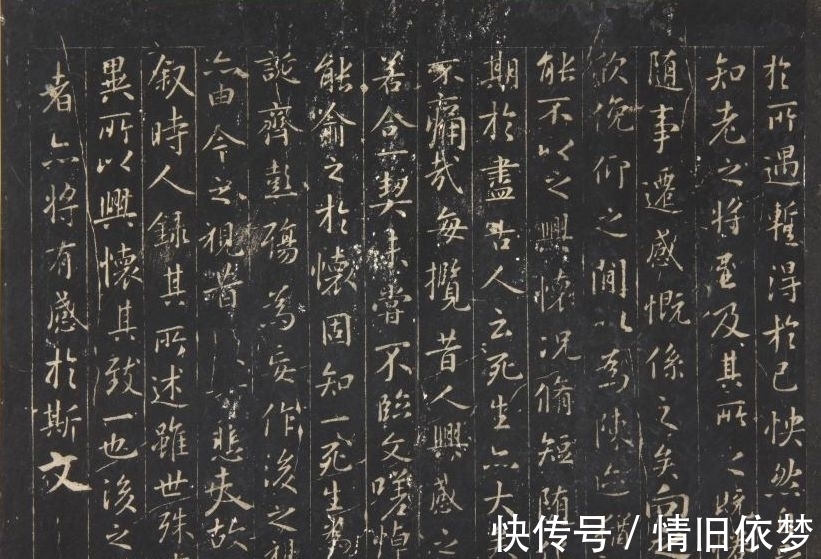 於所遇暫得於己怏然
知老之將至及其所之
随事遷感慨係之矣向
欣俛仰之間以為陳迹猶
能不以之興懷況脩短随
期於盡古人云死生亦大
不痛哉每攬昔人興感之
若合一契未嘗不臨文嗟悼
能喻之於懷固知一死生為
誕齊彭殤為妄作後之視
亦由今之視昔悲夫故
叙時人錄其所述雖世殊
異所以興懷其致一也後之
者亦將有感於斯文
快传号 / 情旧依梦